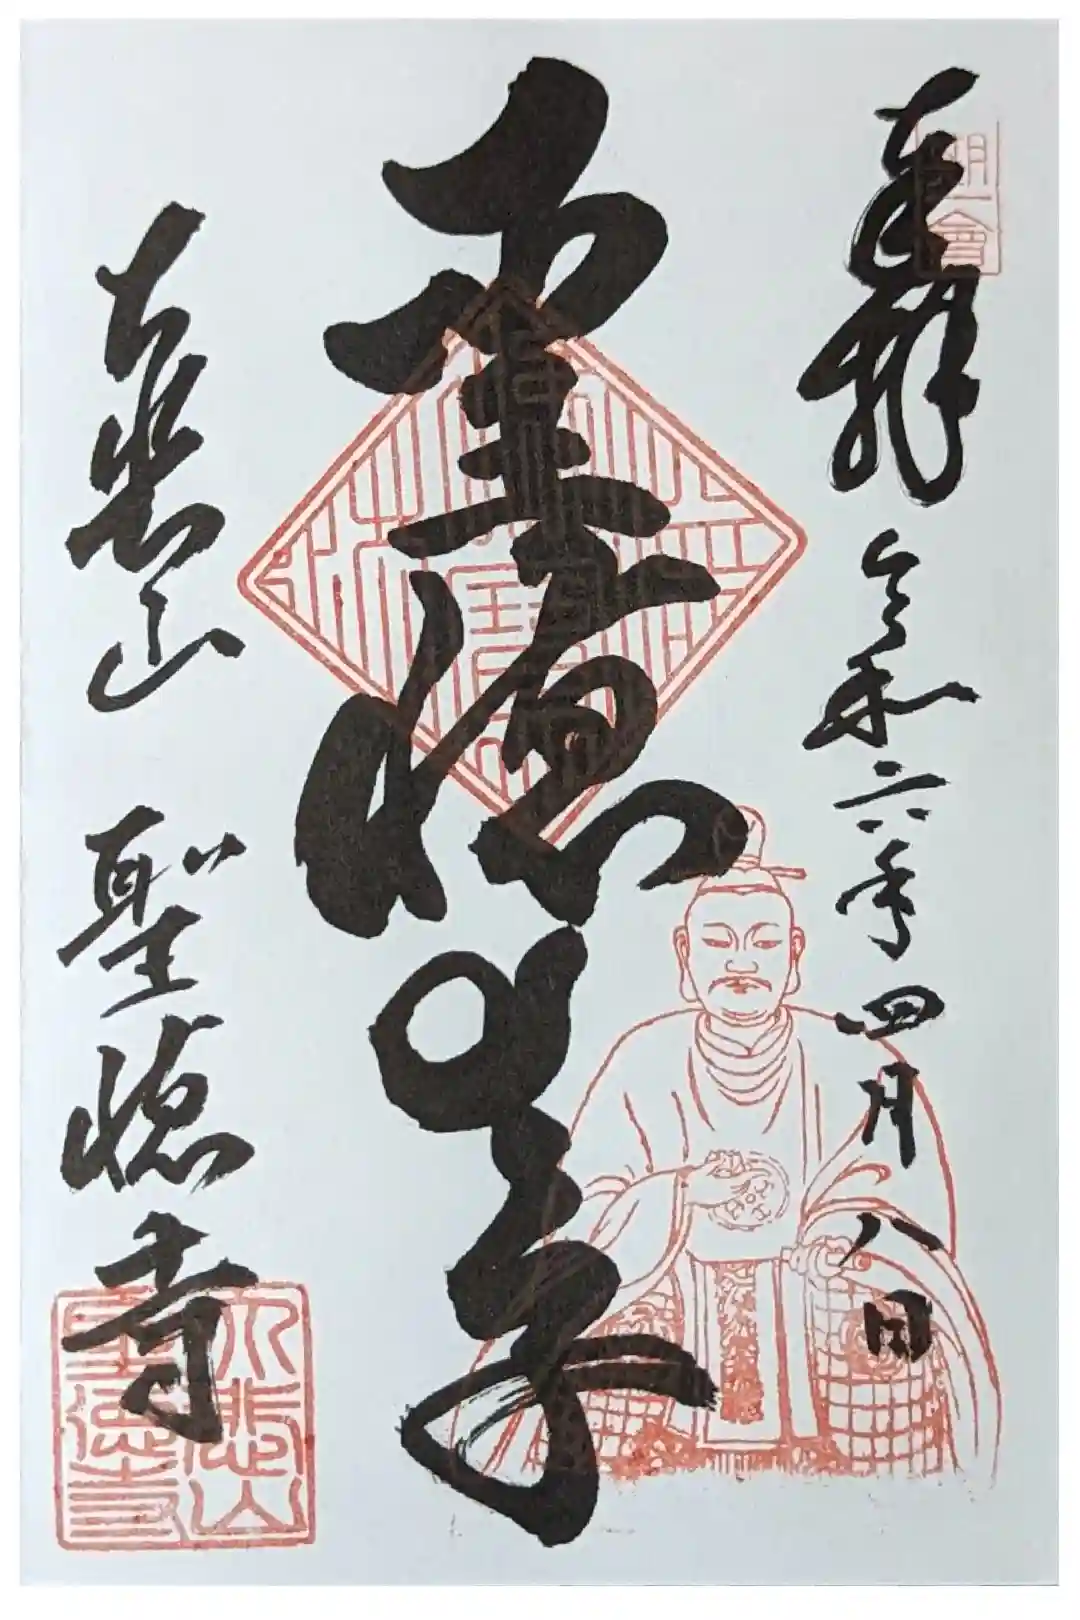 奉拝
令和六年四月八日
聖徳太子
大悲山
聖徳寺
大悲山
聖徳寺